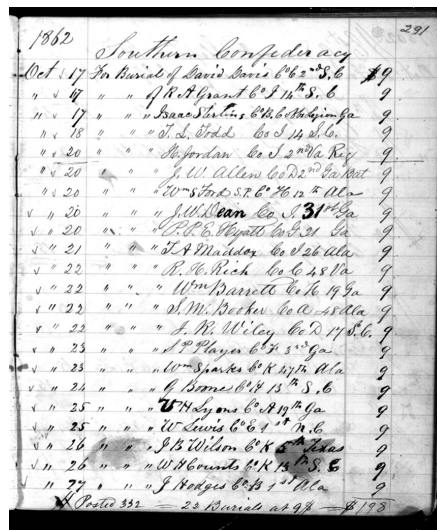 291
1862
Southern Confederacy
Oct √ 17 For Burial of David Davis Co E 2nd S.C $9
" √ 17 " " of R A Grant Co I 14th S. C 9
" √ 17 " " " Isaac Sterling Co B. C Legion Ga 9
" " 18 " " " T. L. Todd Co I 14 S. C. 9
" √ 20 " " " H. Jordan Co I 2nd Va Reg 9
√ " 20 " " " J. W. Allen Co D 2nd Ga Bat 9
√ " 20 " " " Wm S Ford S.P. Co H 12th Ala 9
√ " 20 " " " J. W. Dean Co I. 31st Ga 9
√ " 20 " " " P. P. E. Hyatt Co G 21 Ga 9
√ " 21 " " " T A Maddox Co I 26 Ala 9
√ " 22 " " " R. H. Rich Co C 48 Va 9
√ " 22 " " " Wm Barrett Co K 19 Ga 9
√ " 22 " " " S. M. Booker Co A 48 Ala 9
√ " 22 " " " J. R. Wiley Co D 17 S. C. 9
√ " 23 " " " S P Player Co F 3rd Ga 9
√ " 23 " " " Wm Sparks Co K 47th Ala 9
√ " 24 " " " G Boone Co H 13th S. C 9
√ " 25 " " " W H Lyons Co A 19th Ga 9
√ " 25 " " " W Lewis Co E 1st N. C 9
√ " 26 " " " J B Wilson Co K 5th Texas 9
√ " 26 " " " W H Counts Co K 13th S. C 9
√ " 27 " " " J Hodges Co B 1st Ala 9
Posted 332 — 22 Burials at 9$ = $198